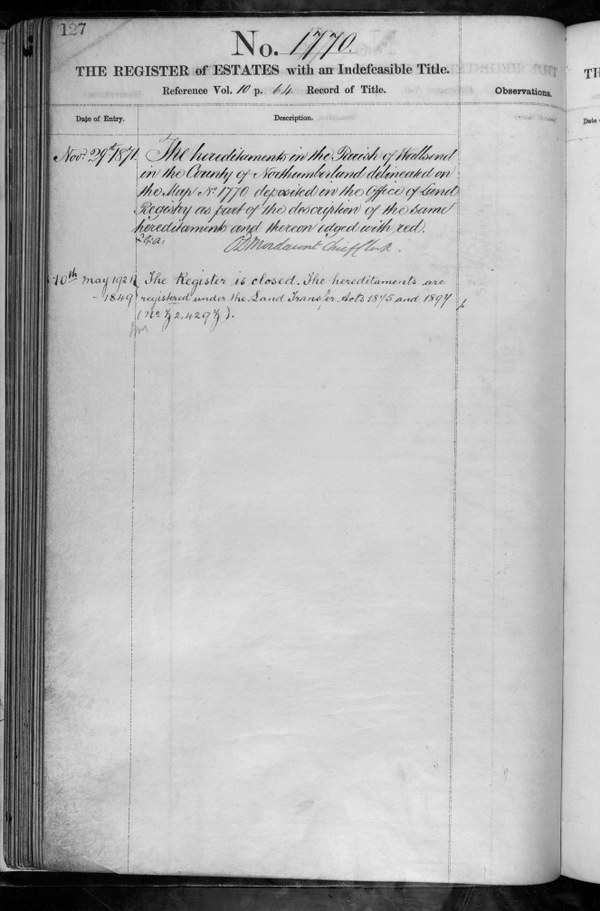 127
No. 1770.
THE REGISTER of ESTATES with an Indefeasible Title.
Reference Vol. 10 p. 64 Record of Title.
Observations.
Date of Entry.
Description.
Novr. 29th 1871.
The hereditaments in the Parish of Wallsend
in the County of Northumberland delineated on
the Map No. 1770 deposited in the Office of Land
Registry as part of the description of the same
hereditaments and thereon edged with red.
Mordaunt Chief Clerk.
10th May 1921
The Register is closed. The hereditaments are
1849
registered under the Land Transfer Acts 1875 and 1897
TH
Date